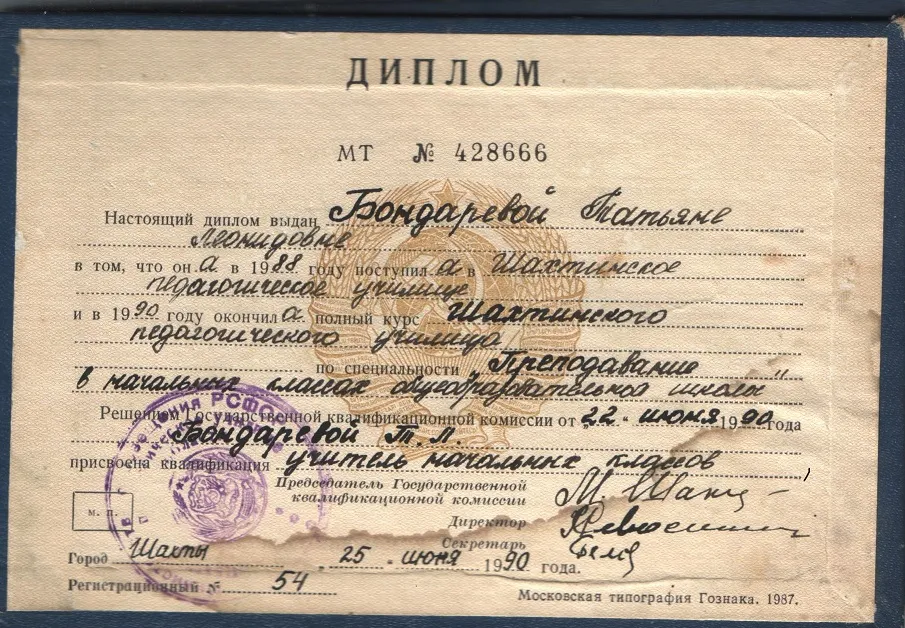 ДИПЛОМ
МТ № 428666
Настоящий диплом выдан Бондаревой Татьяне
Леонидовне
в том, что она в 1988 году поступила в Шахтинское
педагогическое училище
и в 1990 году окончила полный курс Шахтинского
педагогического училища
по специальности „Преподавание
в начальных классах общеобразовательной школы"
Решением Государственной квалификационной комиссии от 22 июня 1990 года
Бондаревой Т. Л.
присвоена квалификация учитель начальных классов
Председатель Государственной
квалификационной комиссии
М. П.
Директор
Секретарь
Город Шахты 25 июня 1990 года.
Регистрационный № 54
Московская типография Гознака. 1987.